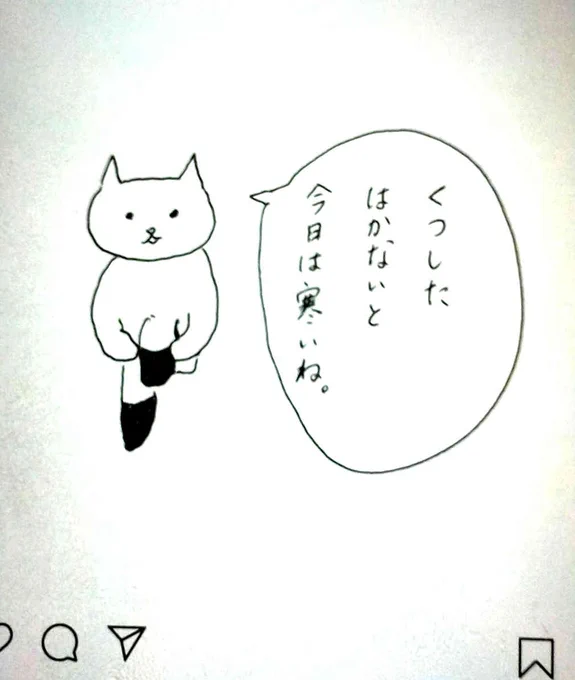 くつした
はかないと
今日は寒いね。